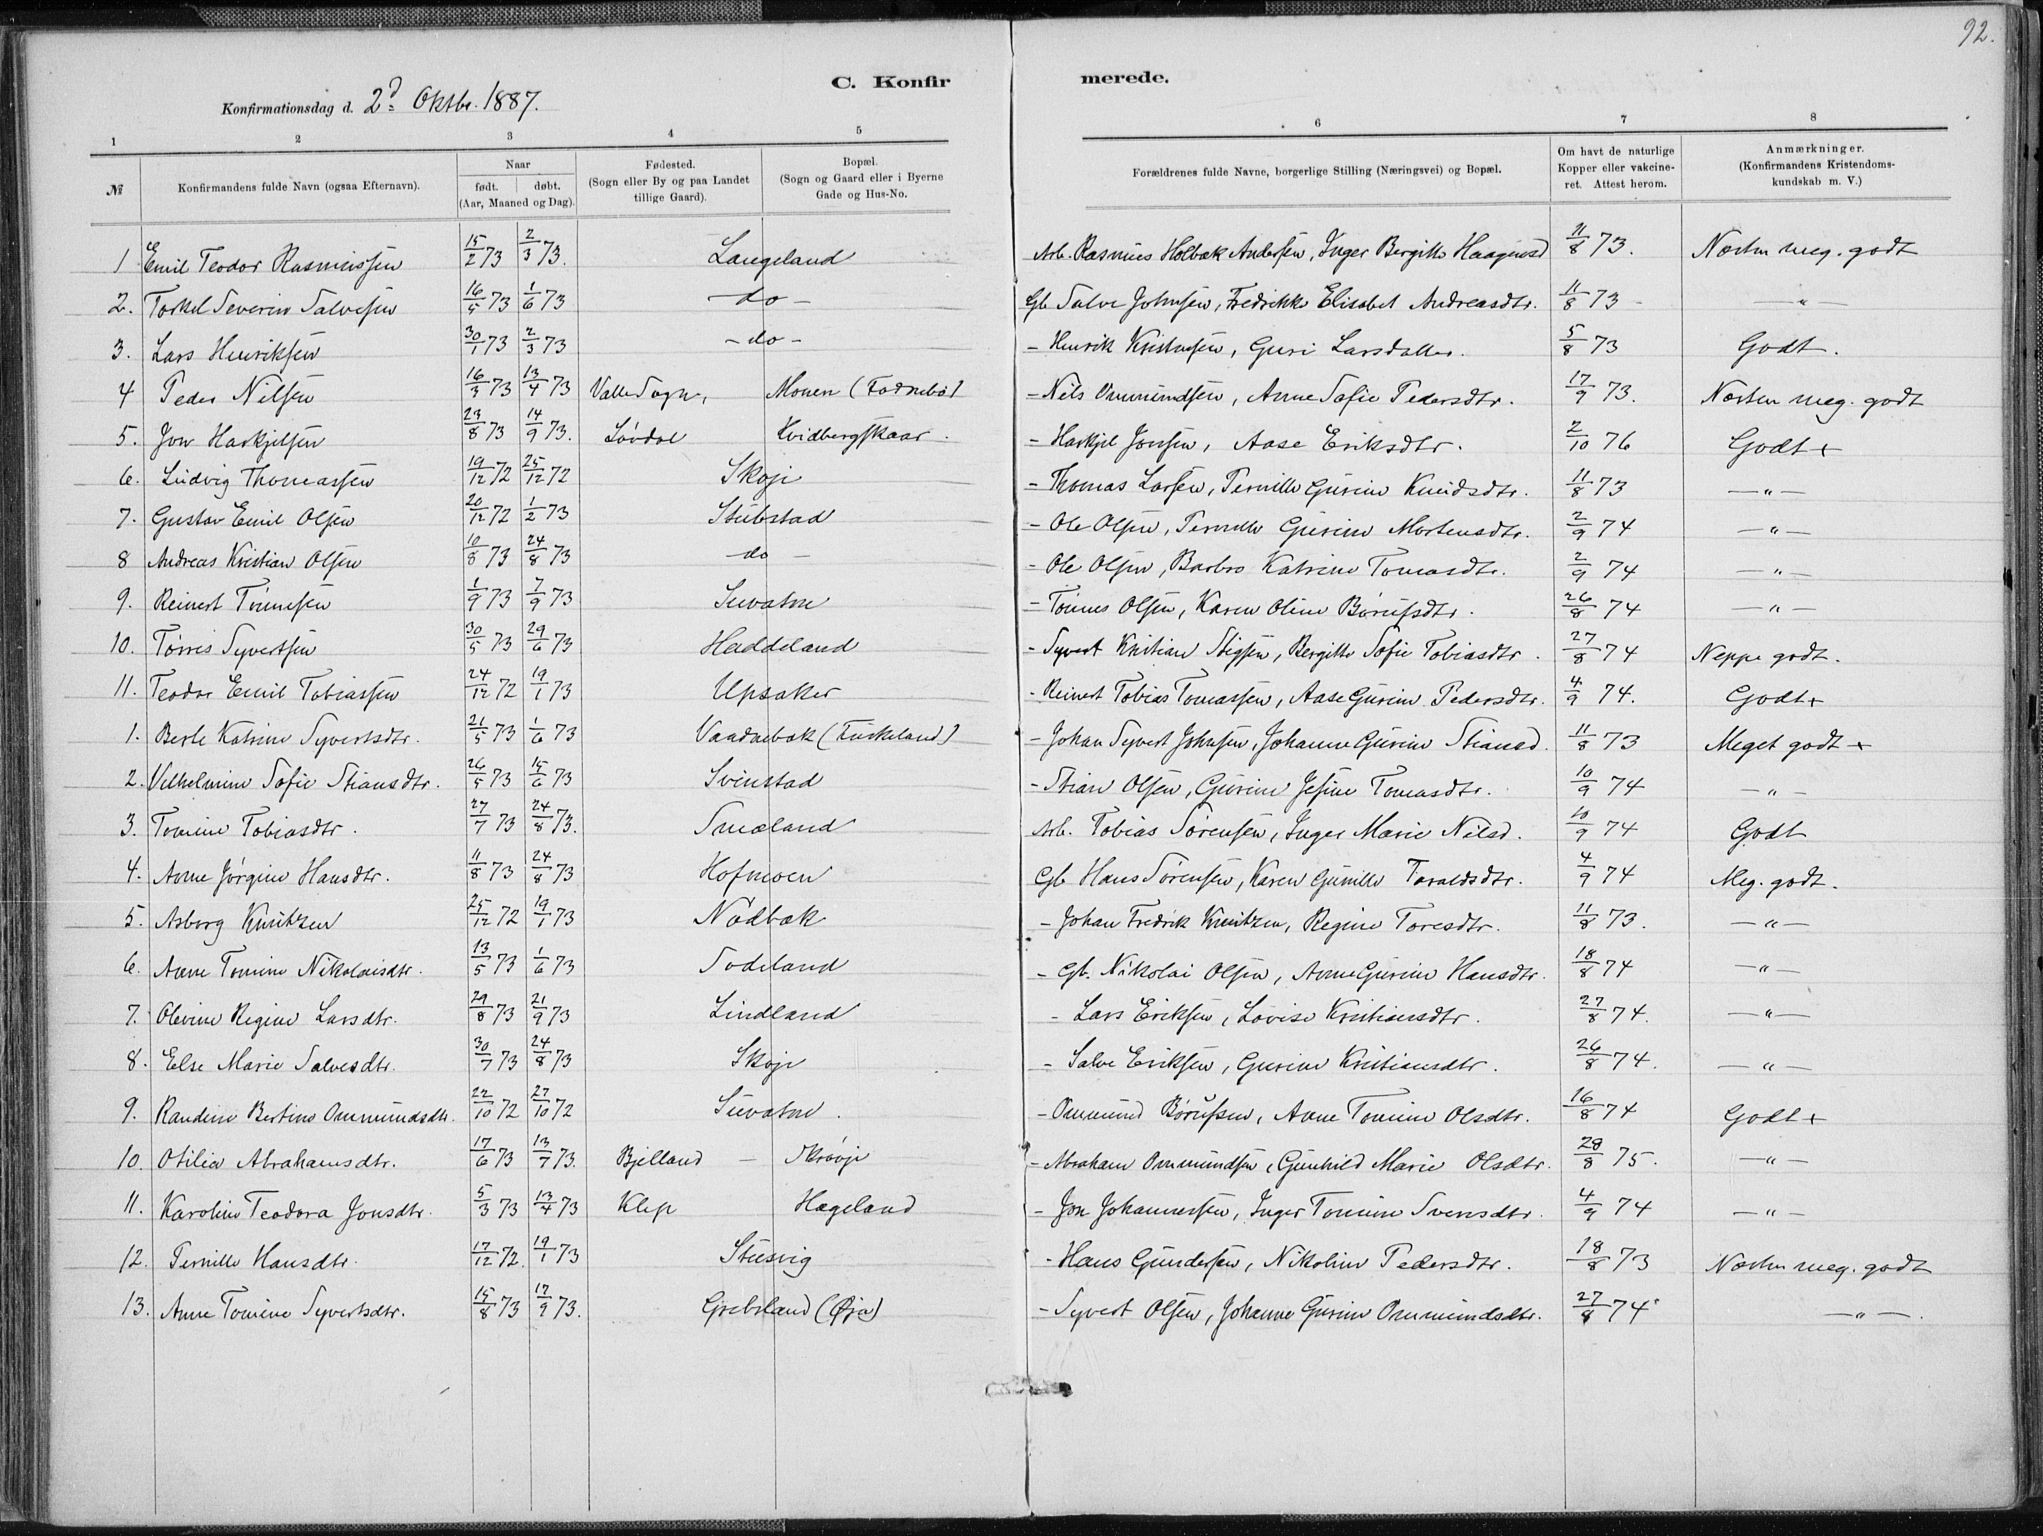 92.
C. Konfirmerede.
Konfirmationsdag d. 2d Oktbr. 1887.
1 2 3 4 5 6 7 8
№ Konfirmandens fulde Navn (ogsaa Efternavn). Naar født. døbt. (Aar, Maaned og Dag). Fødested. (Sogn eller By og paa Landet tillige Gaard). Bopæl. (Sogn og Gaard eller i Byerne Gade og Hus-No. Forældrenes fulde Navne, borgerlige Stilling (Næringsvei) og Bopæl. Om havt de naturlige Kopper eller vakcineret. Attest herom. Anmærkninger. (Konfirmandens Kristendomskundskab m. V.)
1 Emil Teodor Rasmussen 15/2 73 2/3 73. Langeland Arb. Rasmus Holbæk Andersen, Inger Bergitte Haagensd 11/8 73. Næsten meg. godt
2. Torkel Severin Salvesen 16/5 73 1/6 73 - do - Gb Salve Johnsen, Fredrikke Elisabet Andreasdtr. 11/8 73 - — " —
3. Lars Henriksen 30/1 73 2/3 73 - do - - Henrik Kristensen, Guri Larsdatter. 5/8 73 Godt.
4 Peder Nilsen 16/3 73 13/4 73 Valle Sogn, Monen (Fodnebö) - Nils Ommundsen, Anne Sofie Pedersdtr. 17/9 73. Næsten meg. godt
5. Jon Haskjelsen 23/8 73 14/9 73. Lövdal Kvidbergskaar. - Haskjel Jonsen, Aase Eriksdtr. 2/10 76 Godt +
6. Ludvig Thomassen 19/12 72 25/12 72 Skoje - Thomas Larsen, Pernille Gurine Knudsdtr. 11/8 73 — " —
7. Gustav Emil Olsen 20/12 72 1/2 73 Stubstad - Ole Olsen, Pernille Gurine Mortensdtr. 2/9 74 — " —
8 Andreas Kristian Olsen 10/8 73 24/8 73 - do - - Ole Olsen, Barbro Katrine Tomasdtr. 2/9 74 — " —
9. Reinert Tönnesen 1/9 73 7/9 73 Suvatne - Tönnes Olsen, Karen Oline Börufsdtr. 26/8 74 — " —
10. Tørris Syvertsen 30/5 73 29/6 73 Haddeland - Syvert Kristian Stigsen, Bergitte Sofie Tobiasdtr. 27/8 74 Neppe godt.
11. Teodor Emil Tobiassen 24/12 72 19/1 73 Upsaker - Reinert Tobias Tomassen, Aase Gurine Pedersdtr. 4/9 74. Godt +
1. Berte Katrine Syvertsdtr. 21/5 73 1/6 73 Vaadnebæk (Fuskeland) - Johan Syvert Johnsen, Johanne Gurine Stiansd. 11/8 73 Meget godt +
2. Vilhelmine Sofie Stiansdtr. 26/5 73 15/6 73 Svinstad - Stian Olsen, Gurine Jesine Tomasdtr. 10/9 74 — " —
3. Tomine Tobiasdtr. 27/7 73 24/8 73. Smæland Arb. Tobias Sørensen, Inger Marie Nilsd. 10/9 74 Godt
4. Anne Jørgine Hansdtr. 11/8 73 24/8 73 Hofmoen Gb Hans Sørensen, Karen Gunille Taraldsdtr. 4/9 74 Meg. godt.
5. Asborg Knutzen 25/12 72 19/1 73 Nödbæk - Johan Fredrik Knutzen, Regine Toresdtr. 11/8 73. — " —
6. Anne Tomine Nikolaisdtr. 13/5 73 1/6 73 Todeland - Gb. Nikolai Olsen, Anne Gurine Hansdtr. 18/8 74 — " —
7. Olevine Regine Larsdtr. 29/8 73 21/9 73 Lindland - Lars Eriksen, Lovise Kristiansdtr. 27/8 74. — " —
8. Else Marie Salvesdtr. 30/7 73 24/8 73 Skoje - Salve Eriksen, Gurine Kristiansdtr. 26/8 74. — " —
9. Randine Bertine Ommundsdtr. 22/10 72 27/10 72 Suvatne. - Ommund Børufsen, Anne Tomine Olsdtr. 16/8 74 Godt +
10. Otilia Abrahamsdtr. 17/6 73 13/7 73. Bjelland — - Abraham Ommundsen, Gunhild Marie Olsdtr. 28/8 75. — " —
11. Karoline Teodora Jonsdtr. 5/3 73 13/4 73 Klep Hægeland - Jon Johannessen, Inger Tomine Svensdtr. 4/9 74 — " —
12. Pernille Hansdtr. 17/12 72. 19/1 73 Stusvig - Hans Gundersen, Nikoline Pedersdtr. 18/8 73 Næsten meg. godt
13. Anne Tomine Syvertsdtr. 15/8 73 17/9 73. Grebsland (Øja) - Syvert Olsen, Johanne Gurine Ommundsdtr. 27/8 74 — " —